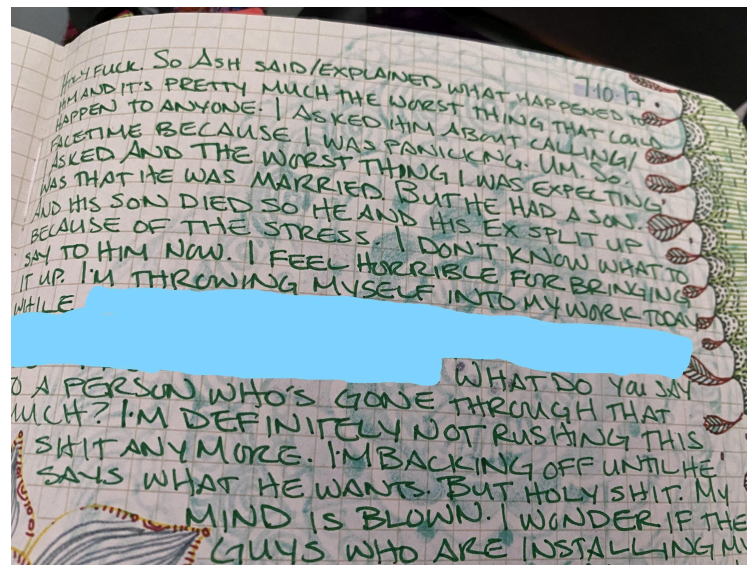 7.10.17.
HOLY FUCK. SO ASH SAID/EXPLAINED WHAT HAPPENED TO
HIM AND IT'S PRETTY MUCH THE WORST THING THAT COULD
HAPPEN TO ANYONE. I ASKED HIM ABOUT CALLING/
FACETIME BECAUSE I WAS PANICKNG. UM. SO.
ASKED AND THE WORST THING I WAS EXPECTING
WAS THAT HE WAS MARRIED. BUT HE HAD A SON.
AND HIS SON DIED SO HE AND HIS EX SPLIT UP
BECAUSE OF THE STRESS. I DON'T KNOW WHAT TO
SAY TO HIM NOW. I FEEL HORRIBLE FOR BRINGING
IT UP. I'M THROWING MYSELF INTO MY WORK TODAY
WHILE
WHAT DO YOU SAY
TO A PERSON WHO'S GONE THROUGH THAT
MUCH? I'M DEFINITELY NOT RUSHING THIS
SHIT ANYMORE. I'M BACKING OFF UNTIL HE
SAYS WHAT HE WANTS. BUT HOLY SHIT. MY
MIND IS BLOWN. I WONDER IF THE
GUYS WHO ARE INSTALLING